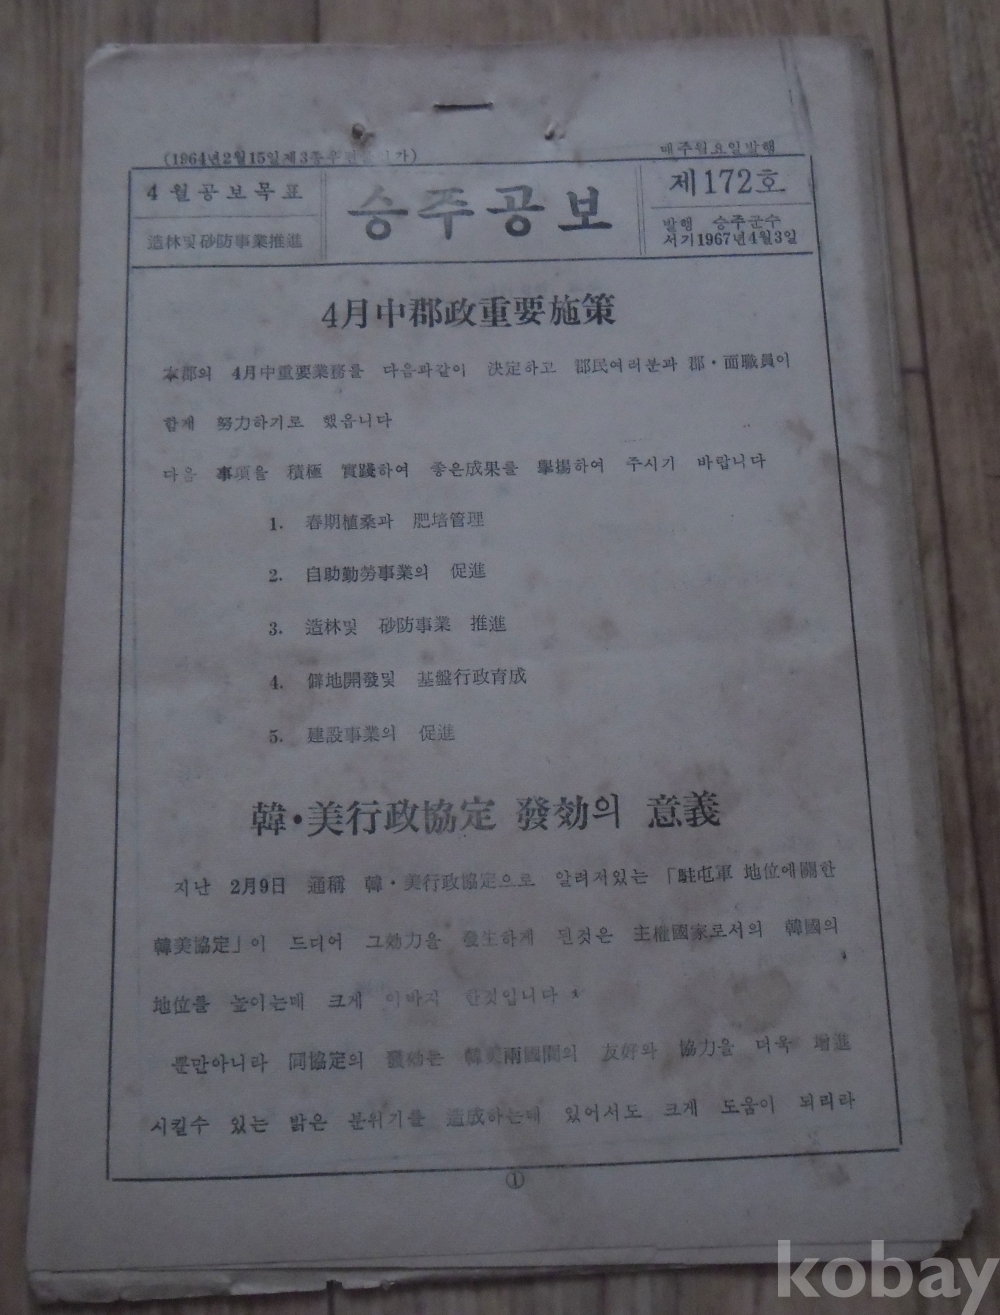 (1964년2월15일제3종우편물인가)
매주월요일발행
4월공보목표
造林및砂防事業推進
승주공보
제172호
발행 승주군수
서기1967년4월3일
4月中郡政重要施策
本郡의 4月中重要業務를 다음과같이 決定하고 郡民여러분과 郡·面職員이
함께 努力하기로 했읍니다
다음 事項을 積極 實踐하여 좋은成果를 擧揚하여 주시기 바랍니다
1. 春期植桑과 肥培管理
2. 自助勤勞事業의 促進
3. 造林및 砂防事業 推進
4. 僻地開發및 基盤行政育成
5. 建設事業의 促進
韓·美行政協定 發効의 意義
지난 2月9日 通稱 韓·美行政協定으로 알려저있는 「駐屯軍 地位에關한
韓美協定」이 드디어 그効力을 發生하게 된것은 主權國家로서의 韓國의
地位를 높이는데 크게 이바지 한것입니다
뿐만아니라 同協定의 發効는 韓美兩國間의 友好와 協力을 더욱 增進
시킬수 있는 밝은 분위기를 造成하는데 있어서도 크게 도움이 되리라
①
kobay